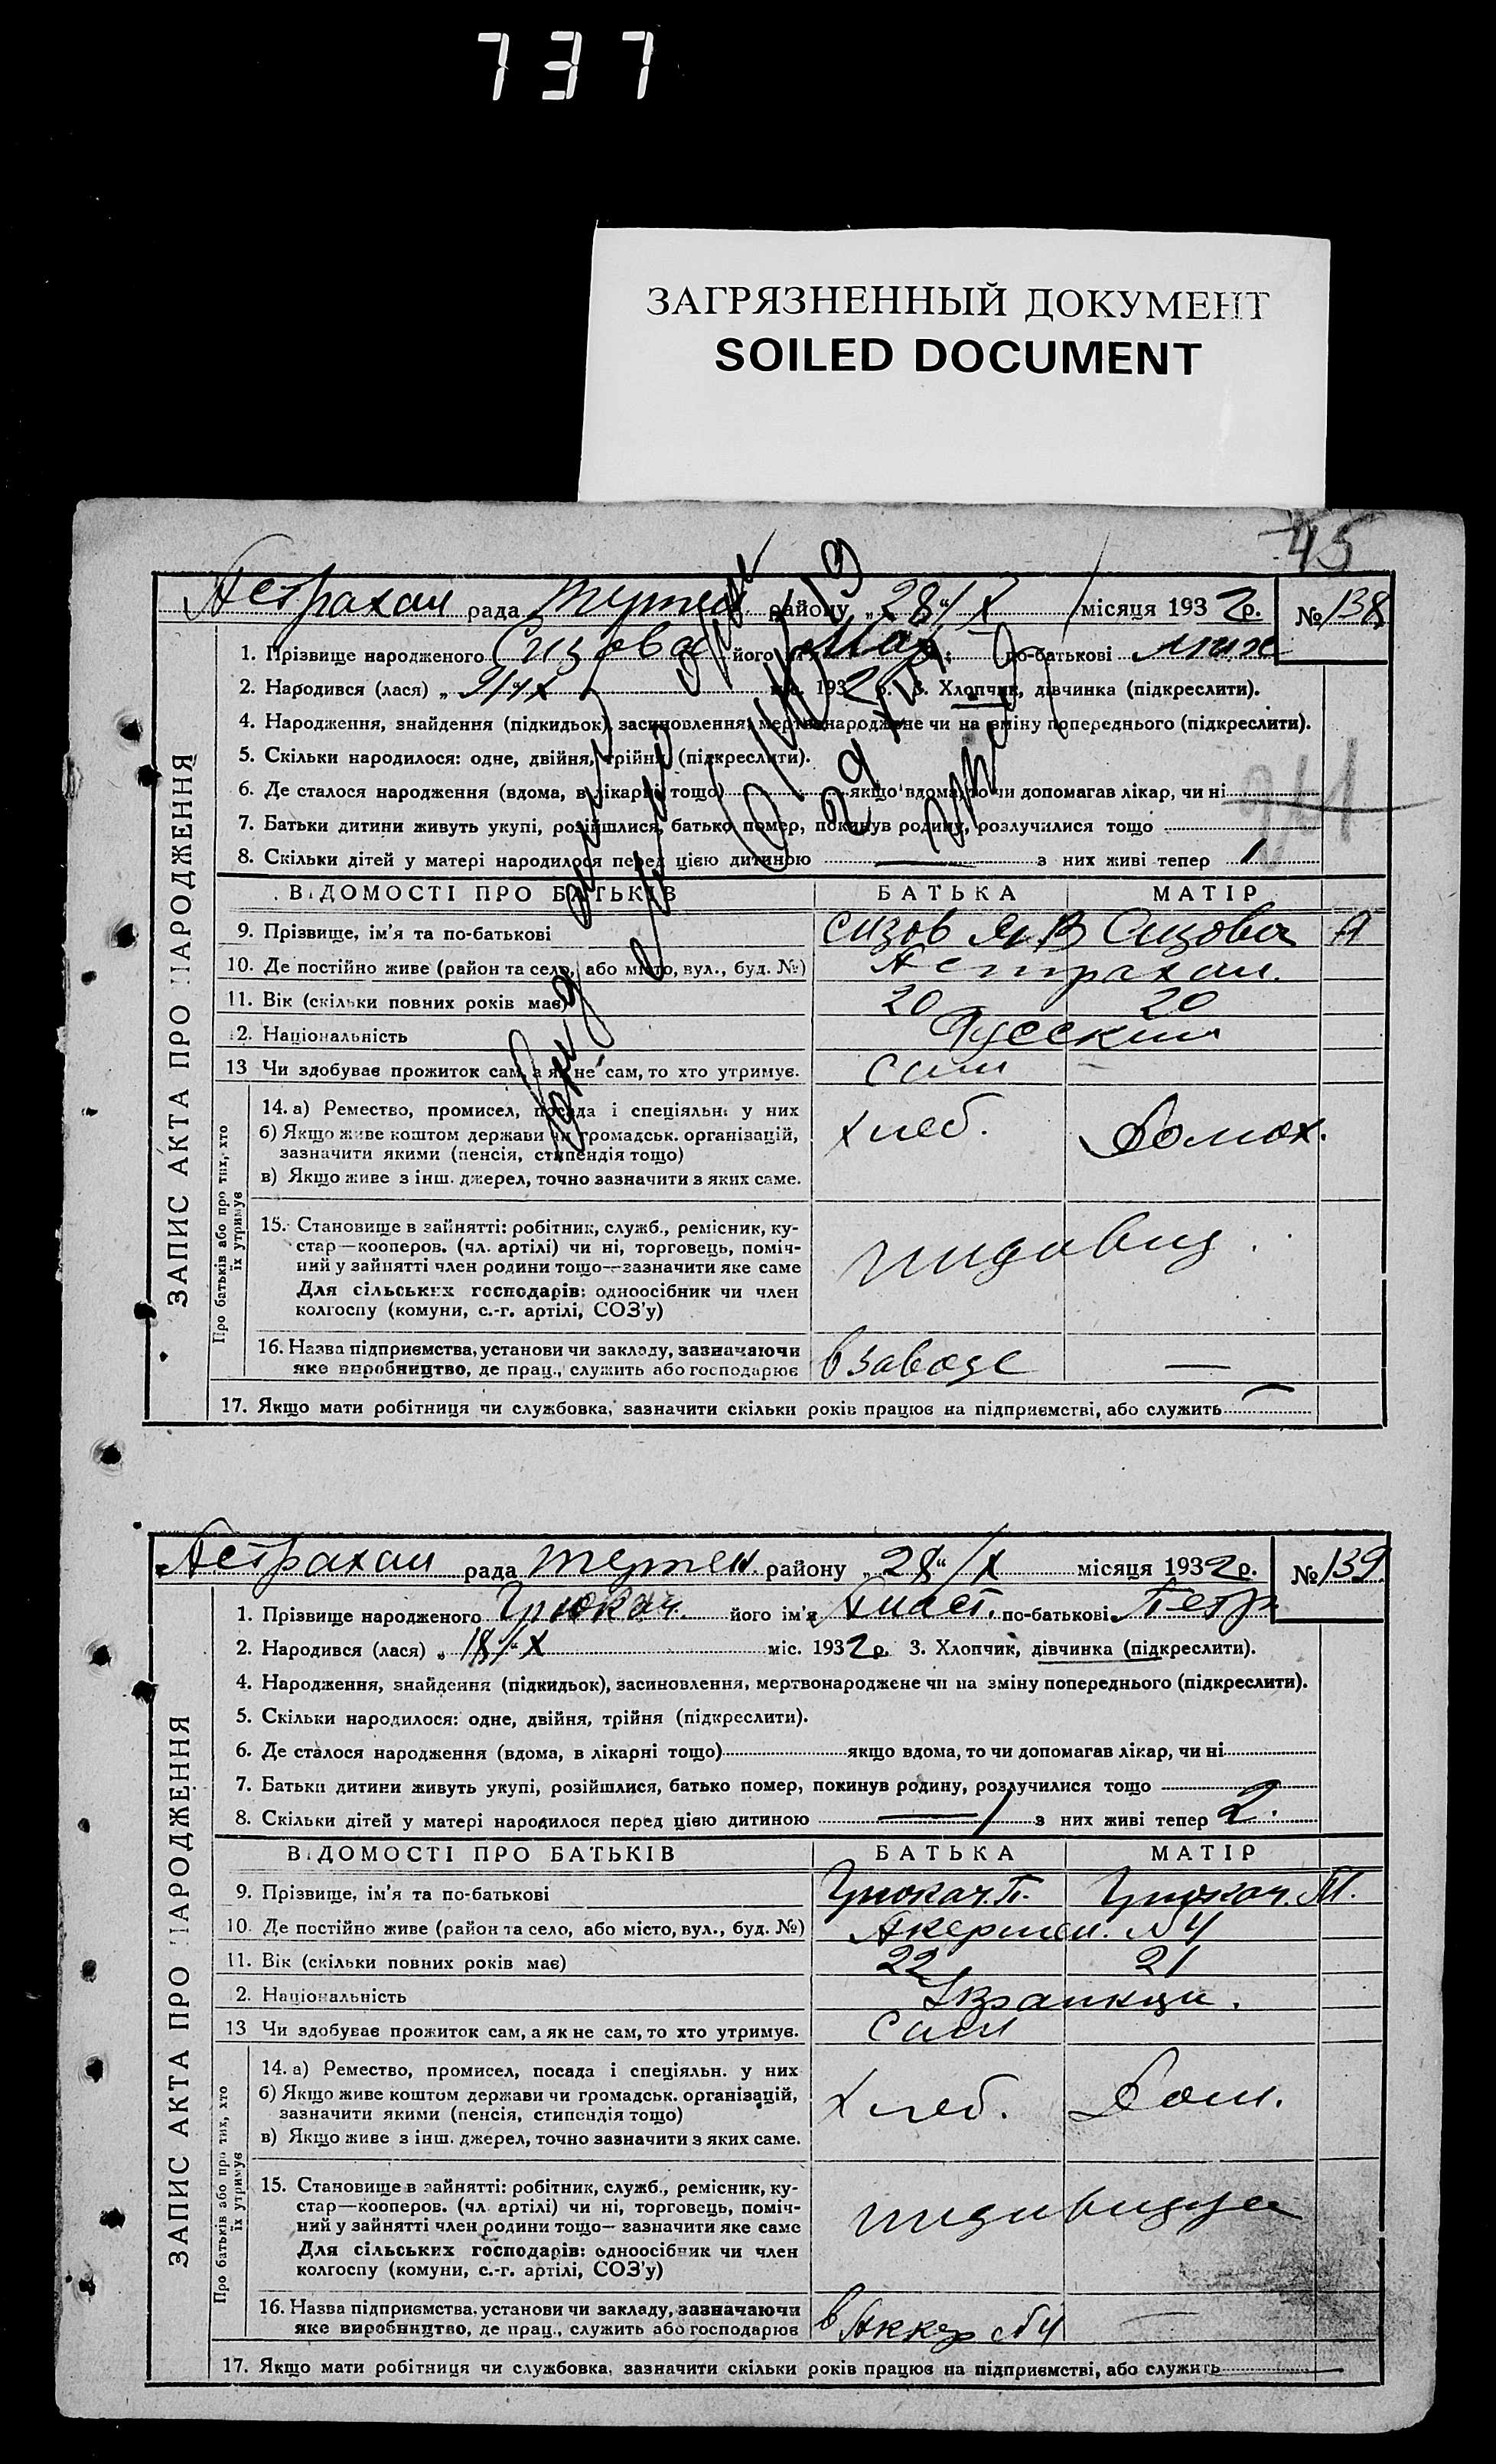 737
ЗАГРЯЗНЕННЫЙ ДОКУМЕНТ
SOILED DOCUMENT
45
Астрахан рада район у „28“/X місяця 1932р. № 138
1. Прізвище народженого Сизова його
по-батькові
2. Народився (лася) „ міс. 1932р. 3. Хлопчик, дівчинка (підкреслити).
4. Народження, знайдення (підкидьок), засиновлення, мертвонароджене чи на зміну попереднього (підкреслити).
5. Скільки народилося: одне, двійня, трійня (підкреслити).
6. Де сталося народження (вдома, в лікарні тощо) якщо вдома, то чи допомагав лікар, чи ні
7. Батьки дитини живуть укупі, розійшлися, батько помер, покинув родину, розлучилися тощо
8. Скільки дітей у матері народилося перед цією дитиною — з них живі тепер 1
ВІДОМОСТІ ПРО БАТЬКІВ БАТЬКА МАТІР
9. Прізвище, ім'я та по-батькові Сизов Сизова А
10. Де постійно живе (район та село, або місто, вул., буд. №) Астрахан.
11. Вік (скільки повних років має) 20 20
2. Національність Русский
13 Чи здобуває прожиток сам, а як не сам, то хто утримує. сам
14. а) Ремество, промисел, посада і спеціяльн. у них
б) Якщо живе коштом держави чи громадськ. організацій,
зазначити якими (пенсія, стипендія тощо)
в) Якщо живе з інш. джерел, точно зазначити з яких саме.
хлеб. Домох.
15. Становище в зайнятті: робітник, служб., ремісник, ку-
стар—кооперов. (чл. артілі) чи ні, торговець, поміч-
ний у зайнятті член родини тощо—зазначити яке саме
Для сільських господарів: одноосібник чи член
колгоспу (комуни, с.-г. артілі, СОЗ'у)
индивид.
16. Назва підприємства, установи чи закладу, зазначаючи
яке виробництво, де прац., служить або господарює
в заводе —
17. Якщо мати робітниця чи службовка, зазначити скільки років працює на підприємстві, або служить —
ЗАПИС АКТА ПРО НАРОДЖЕННЯ
Про батьків або про тих, хто
їх утримує
Астрахан рада району „28“/X місяця 1932р. № 139
1. Прізвище народженого його ім'я по-батькові Петр
2. Народився (лася) „18“/X міс. 1932р. 3. Хлопчик, дівчинка (підкреслити).
4. Народження, знайдення (підкидьок), засиновлення, мертвонароджене чи на зміну попереднього (підкреслити).
5. Скільки народилося: одне, двійня, трійня (підкреслити).
6. Де сталося народження (вдома, в лікарні тощо) якщо вдома, то чи допомагав лікар, чи ні
7. Батьки дитини живуть укупі, розійшлися, батько помер, покинув родину, розлучилися тощо
8. Скільки дітей у матері народилося перед цією дитиною — з них живі тепер 2.
ВІДОМОСТІ ПРО БАТЬКІВ БАТЬКА МАТІР
9. Прізвище, ім'я та по-батькові
10. Де постійно живе (район та село, або місто, вул., буд. №) Акермен. №4
11. Вік (скільки повних років має) 22 21
2. Національність
13 Чи здобуває прожиток сам, а як не сам, то хто утримує. сам
14. а) Ремество, промисел, посада і спеціяльн. у них
б) Якщо живе коштом держави чи громадськ. організацій,
зазначити якими (пенсія, стипендія тощо)
в) Якщо живе з інш. джерел, точно зазначити з яких саме.
хлеб. Дом.
15. Становище в зайнятті: робітник, служб., ремісник, ку-
стар—кооперов. (чл. артілі) чи ні, торговець, поміч-
ний у зайнятті член родини тощо—зазначити яке саме
Для сільських господарів: одноосібник чи член
колгоспу (комуни, с.-г. артілі, СОЗ'у)
16. Назва підприємства, установи чи закладу, зазначаючи
яке виробництво, де прац., служить або господарює
в Аккер №4 —
17. Якщо мати робітниця чи службовка, зазначити скільки років працює на підприємстві, або служить —
ЗАПИС АКТА ПРО НАРОДЖЕННЯ
Про батьків або про тих, хто
їх утримує